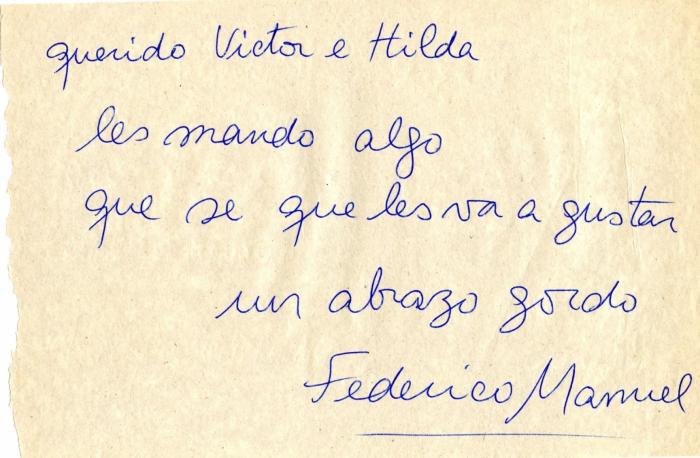 querido Victor e Hilda
les mando algo
que se que les va a gustar
un abrazo gordo
Federico Manuel